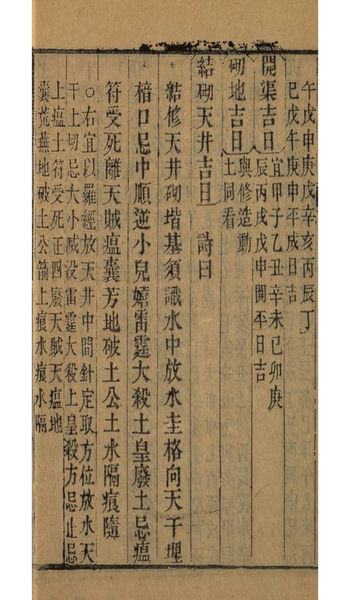 午戊申庚戌辛亥丙辰丁
巳戊午庚申平成日吉
開渠吉日 宜甲子乙丑辛未己卯庚
辰丙戌戊申開平日吉
砌地吉日 與修造動
土同看
結砌天井吉日 詩曰
結修天井砌堦基須識水中放水圭格向天干埋
棓口忌中順逆小兒嬉雷霆大殺土皇廢土忌瘟
符受死離天賊瘟囊芳地破土公土水隔痕隨
○右宜以羅經放天井中間針定取方位放水天
干上切忌大小滅没雷霆大殺土皇殺方忌止忌
土瘟土符受死正四廢天賊天瘟地
囊荒蕪地破土公箭土痕水痕水隔